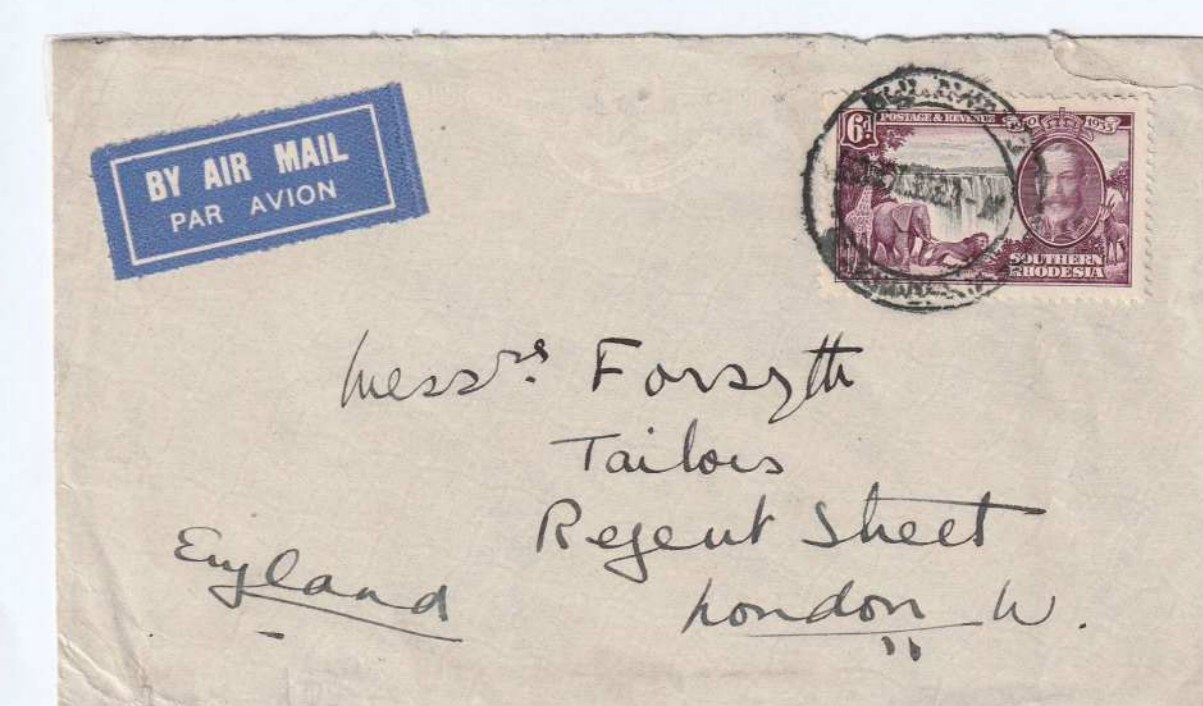 BY AIR MAIL
PAR AVION
6d. POSTAGE & REVENUE 1910 1935
SOUTHERN RHODESIA
Messrs. Forsyth
Tailors
Regent Street
England
London W.